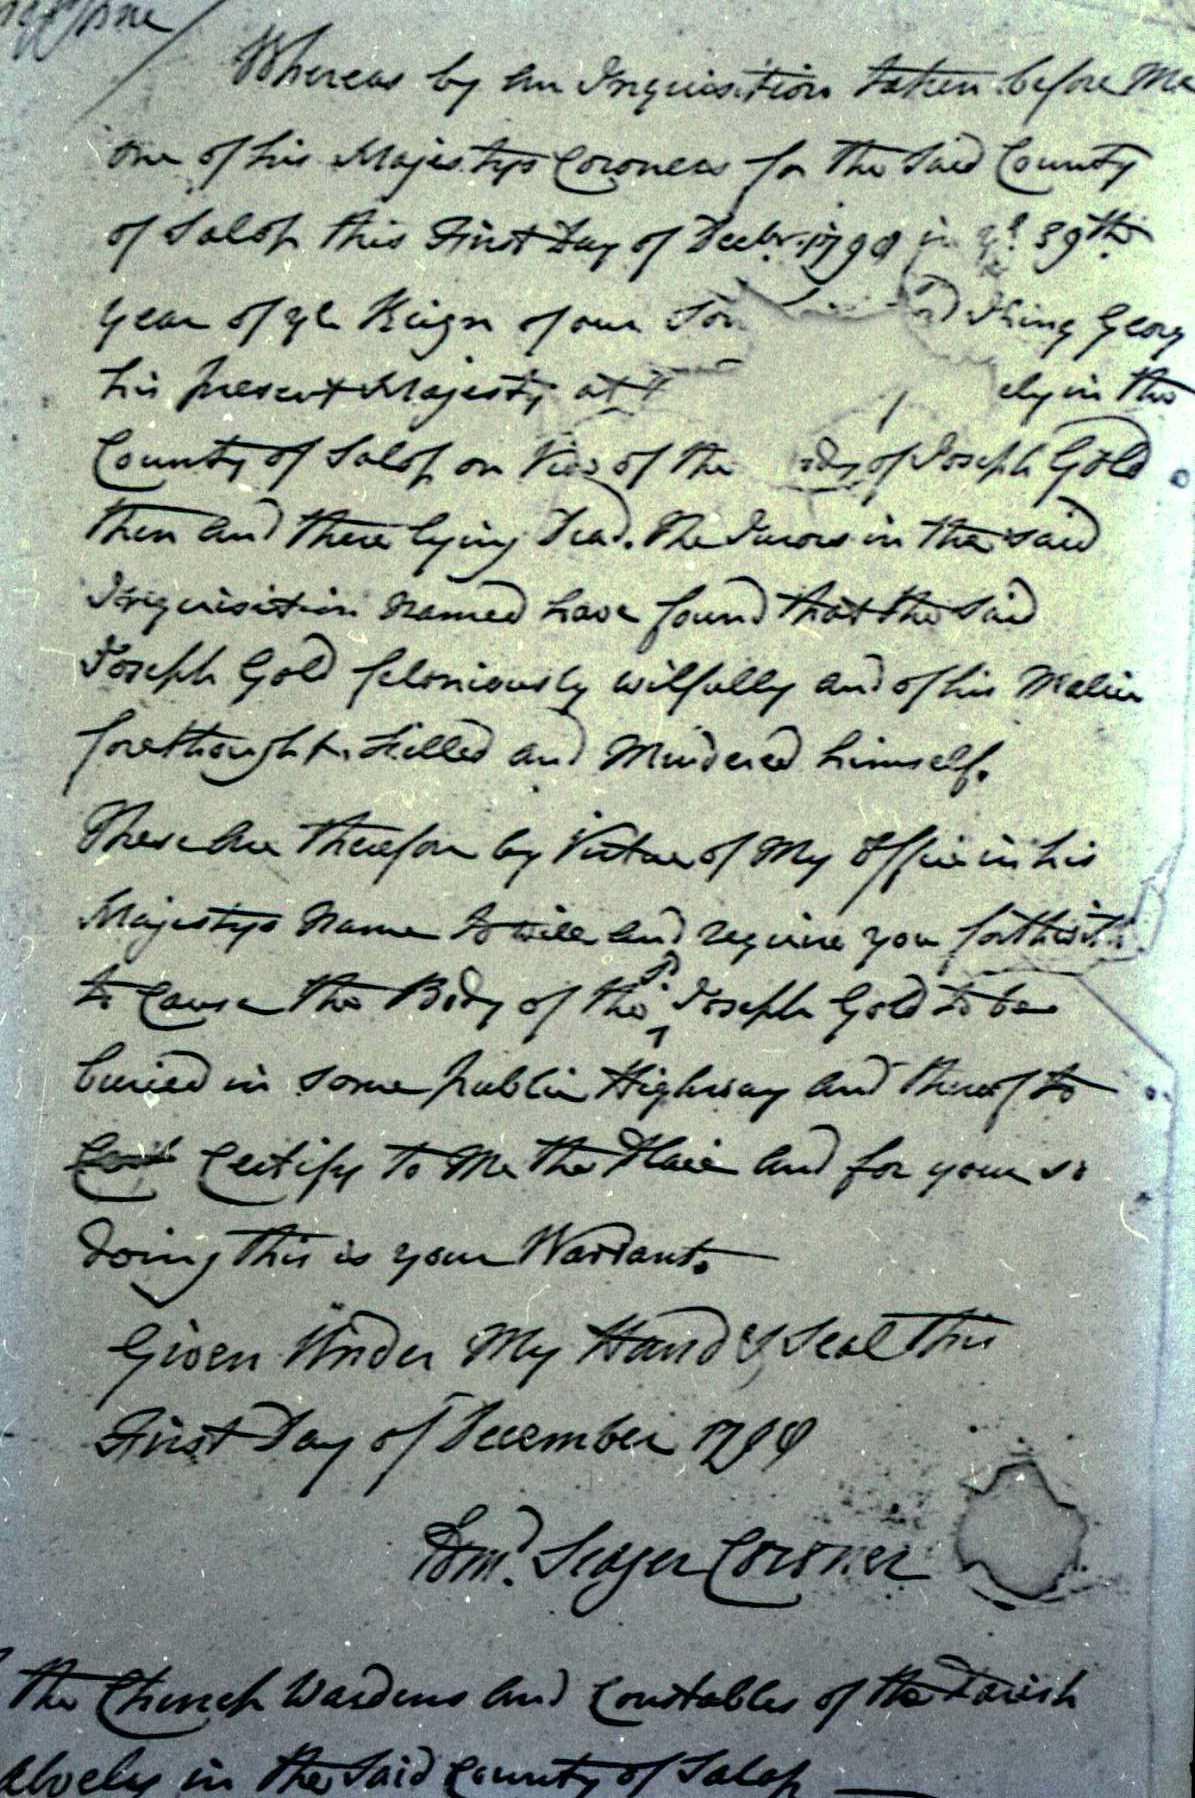 Whereas by an Inquisition taken before Me
one of his Majestys Coroners for the Said County
of Salop this First Day of Decbr. 1798 in ye. 39th.
year of ye Reign of our King Georg
his present Majesty at ely in the
County of Salop on View of the ody of Joseph Gold
then and there lying Dead. The Jurors in the said
Inquisition Named have found that the Said
Joseph Gold feloniously wilfully and of his Malice
forethought killed and Murdered himself.
These are therefore by Virtue of My Office in his
Majestys Name to will and require you forthwith
to Cause the Body of the sd. Joseph Gold to be
buried in some publick Highway and thereof to
Certify to Me the Place and for your so
doing this is your Warrant.
Given Under My Hand & Seal this
First Day of December 1798
Coroner
the Church Wardens and Constables of the Parish
Alveley in the Said County of Salop